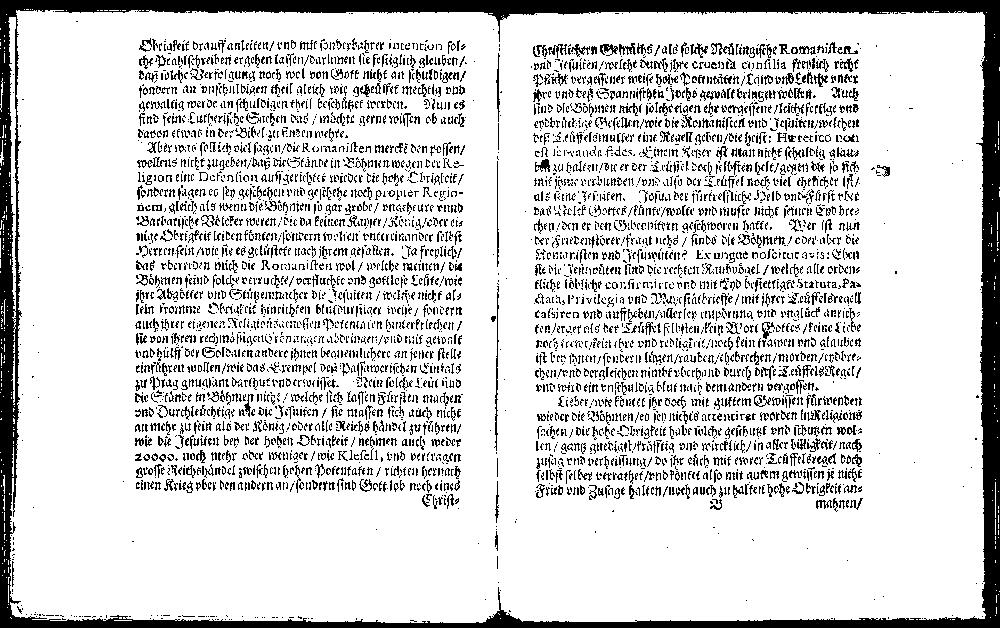 Obrigkeit drauff anleiten / vnd mit sonderbahrer intention sol-
che Prahlschreiben ergehen lassen / darinnen sie festiglich glauben /
daß solche Verfolgung noch wol von Gott nicht an schuldigen /
sondern an vnschuldigen theil gleich wie gehäuffet mechtig vnd
gewaltig werde an schuldigen theil beschützet werden. Nun es
sind feine Lutherische Sachen das / möchte gerne wissen ob auch
davon etwas in der Bibel zu finden wehre.
Aber was soll ich viel sagen / die Romanisten merckt den possen /
wollens nicht zugeben / daß die Stände in Böhmen wegen der Re-
ligion eine Defension auffgerichtet wieder die hohe Obrigkeit /
sondern sagen es sey geschehen vnd geschehe noch propter Regio-
nem, gleich als wenn die Böhmen so gar grobe / vngeheure vnnd
Barbarische Völcker weren / die da keinen Kayser / König / oder ei-
nige Obrigkeit leiden könten / sondern wolten vntereinander selbst
Herren sein / wie sie es gelüstete nach jhrem gefallen. Ja freylich /
das vberreden mich die Romanisten wol / welche meinen / die
Böhmen seind solche verruchte / verfluchte vnd gottlose Leute / wie
jhre Abgötter vnd Stützenmacher die Jesuiten / welche nicht al-
lein fromme Obrigkeit hinrichten blutdurstiger weise / sondern
auch jhrer eigenen Religionsgenossen Potentaten hinterkriechen /
sie von jhren rechmäßigen Crönungen abdringen / vnd mit gewalt
vnd hülff der Soldaten andere jhnen bequemlichere an jener stelle
einführen wollen / wie das Exempel deß Passawerischen Einfals
zu Prag gnugsam darthut vnd erweiset. Nein solche Leut sind
die Stände in Böhmen nicht / welche sich lassen Fürsten machen
vnd Durchleüchtige wie die Jesuiten / sie massen sich auch nicht
an mehr zu sein als der König / oder alle Reichs händel zu führen /
wie die Jesuiten bey der hohen Obrigkeit / nehmen auch weder
20000. noch mehr oder weniger / wie Klesell, vnd vertragen
grosse Reichshändel zwischen hohen Potentaten / richten hernach
einen Krieg vber den andern an / sondern sind Gott lob noch eines
Christ-
Christlichern Gemüths / als solche Neülingische Romanisten
vnd Jesuiten / welche durch jhre cruenta consilia freylich recht
Pflicht vergessener weise hohe Potentaten / Land vnd Leuthe vnter
jhre vnd deß Spannischen Jochs gewalt bringen wollen. Auch
sind die Böhmen nicht solche eigen ehr vergessene / leichtfertige vnd
eydbrüchige Gesellen / wie die Romanisten vnd Jesuiten / welchen
deß Teüffelsmutter eine Regell geben / die heist: Hæretico non
est servanda fides. Einem Ketzer ist man nicht schuldig glau-
ben zu halten / die er der Teüffel doch selbsten helt / gegen die so sich
mit jhme verbunden / vnd also der Teüffel noch viel ehrlicher ist /
als seine Jesuiten. Josua der fürtreffliche Held vnd Fürst vber
das Volck Gottes / künte / wolte vnd muste nicht seinen Eyd bre-
chen / den er den Gibeonitern geschworen hatte. Wer ist nun
der Friedenstörer / fragt sichs / sinds die Böhmen / oder aber die
Romanisten vnd Jesuwiten? Ex ungue noscitur avis: Eben
sie die Jesuwiten sind die rechten Raubvögel / welche alle orden-
tliche löbliche confirmirte vnd mit Eyd befestigte Statuta, Pa-
cta, Privilegia vnd Mayestätbrieffe / mit jhrer Teüffelsregell
cassiren vnd auffheben / allerley empörung vnd vnglück anrich-
ten / erger als der Teüffel selbsten / kein Wort Gottes / keine Liebe
noch trewe / kein ehre vnd redligkeit / noch kein trawen vnd glauben
ist bey jhnen / sondern lügen / rauben / ehebrechen / morden / eydbre-
chen / vnd dergleichen nimbt vberhand durch diese Teüffels Regel /
vnd wird ein vnschuldig blut nach dem andern vergossen.
Lieber / wie könnet jhr doch mit guttem Gewissen fürwenden
wieder die Böhmen / es sey nichts attentiret worden in Religions
sachen / die hohe Obrigkeit habe solche geschutzt vnd schützen wol-
len / gantz gnedigst / kräfftig vnd wircklich / in aller billigkeit / nach
zusag vnd verheissung / do jhr euch mit ewrer Teüffelsregel doch
selbst selber verrathet / vnd könnet also mit gutem gewissen je nicht
Fried vnd Zusage halten / noch auch zu halten hohe Obrigkeit an-
B mahnen /